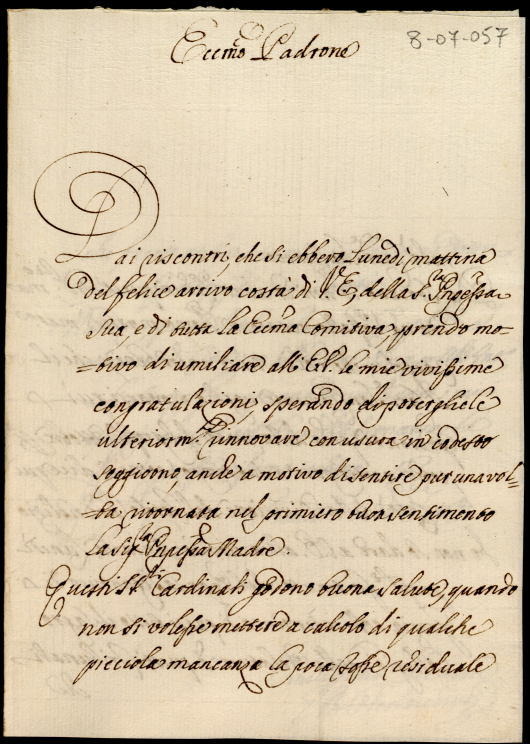 Eccmo Padrone
8-07-057
Dai riscontri, che si ebbero Lunedì mattina
del felice arrivo costà di V. E, della S.ra Pnpessa
sua, e di tutta la Eccma Comitiva, prendo mo-
=tivo di umiliare all' E V. le mie vivissime
congratulazioni, sperando di potergliele
ulteriorm.te rinnovare con usura in codesto
soggiorno, anche a motivo di sentire pur una vol-
=ta ritornata nel primiero buon sentimento
la Sig.ra Pnpessa Madre.
Questi SS.ri Cardinali godono buona salute, quando
non si volesse mettere a calcolo di qualche
picciola mancanza la poca tosse residuale